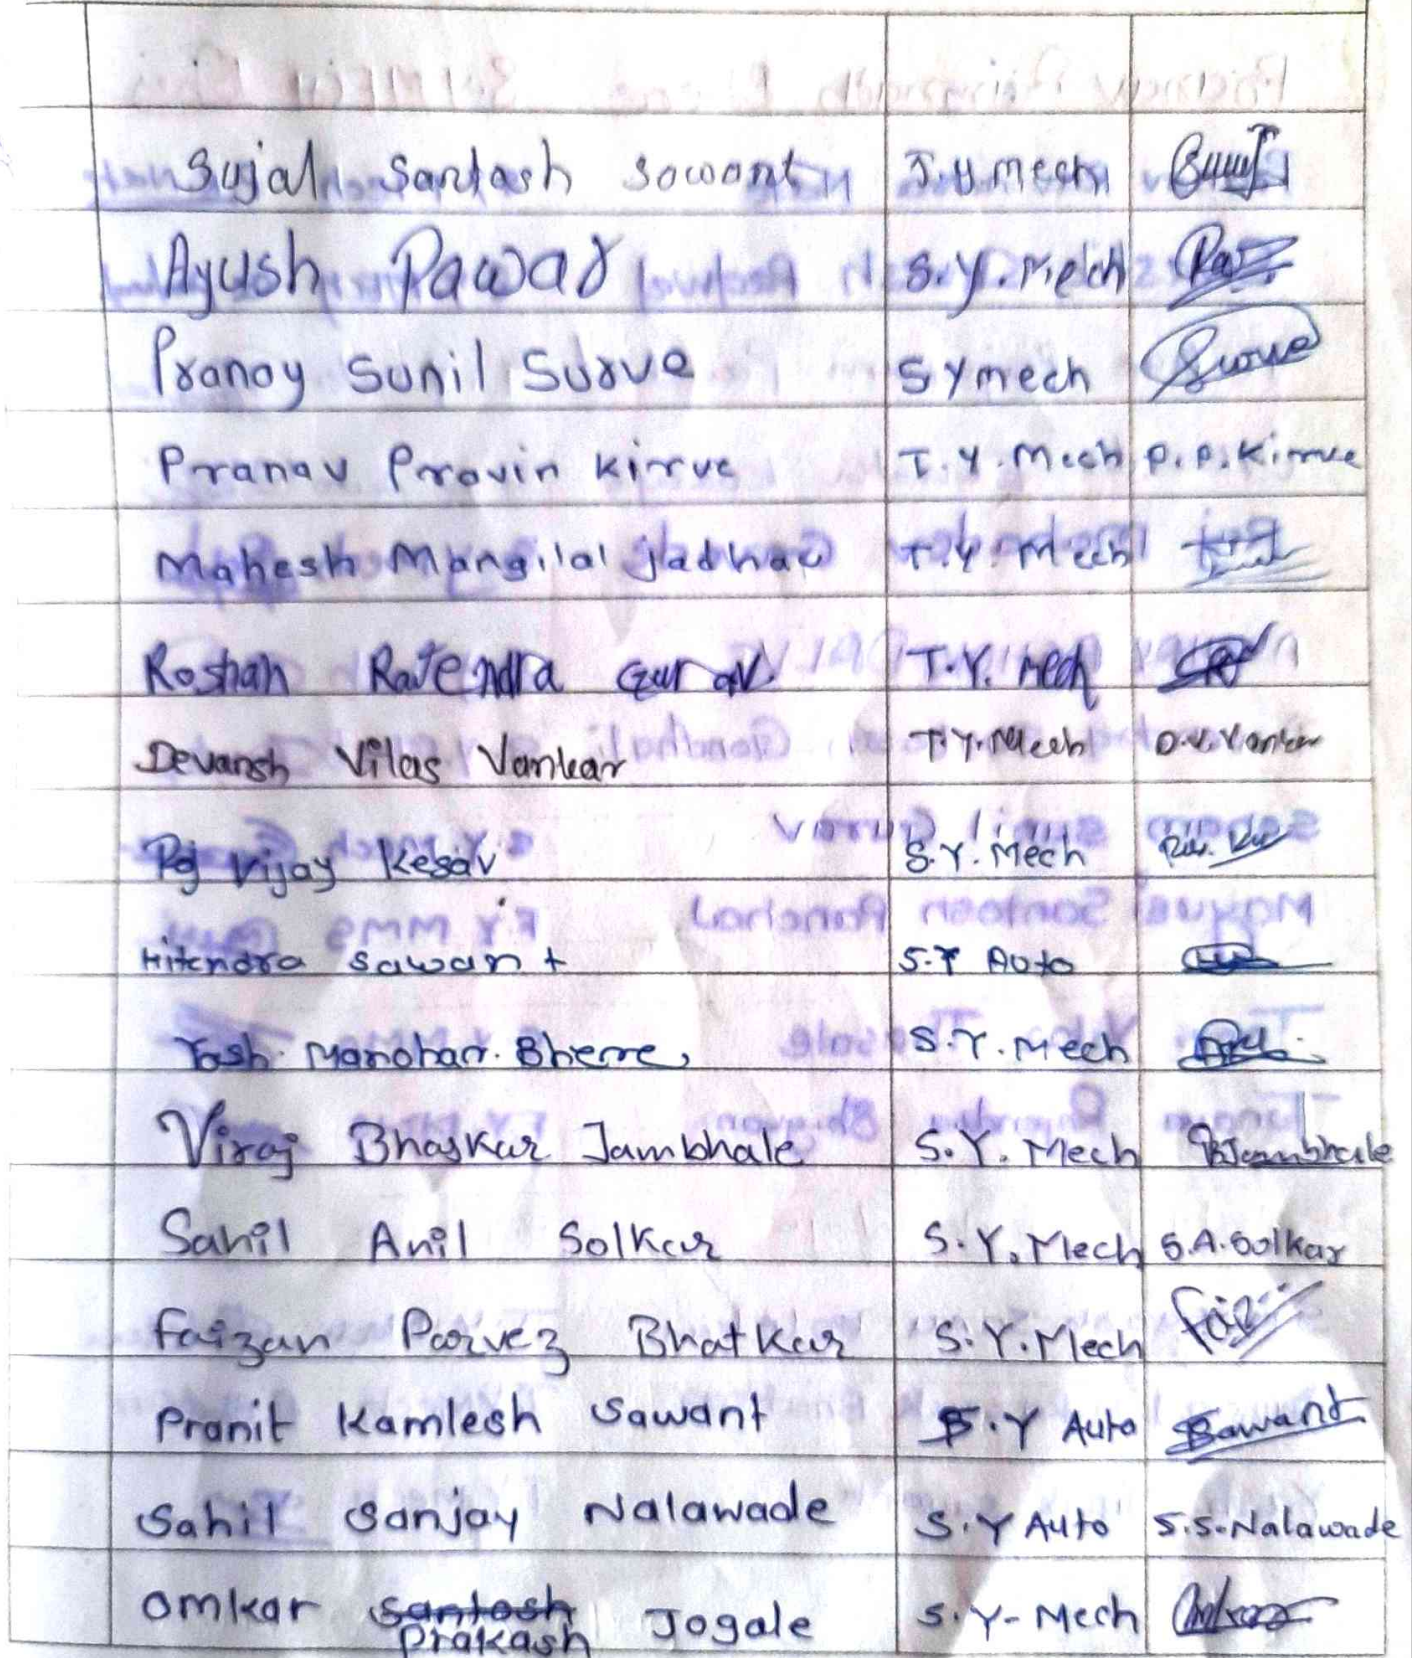 Sujal Santosh Sawant T.Y.Mech
Ayush Pawar S.Y.Mech
Pranay Sunil Surve SYmech Surve
Pranav Pravin Kirve T.Y.Mech P.P.Kirve
Mahesh Mangilal Jadhav T.Y.Mech
Roshan Rajendra Gurav T.Y.Mech
Devansh Vilas Vankar T.Y.Mech D.V.Vankar
Raj Vijay Kesav S.Y.Mech
Hitendra Sawant S.Y Auto
Yash Manohar Bherre S.Y.Mech
Viraj Bhaskar Jambhale S.Y.Mech BJambhale
Sahil Anil Solkar S.Y.Mech S.A.Solkar
Faizan Parvez Bhatkar S.Y.Mech Faiz
Pranit Kamlesh Sawant S.Y Auto Sawant
Sahil Sanjay Nalawade S.Y Auto S.S.Nalawade
Omkar Santosh Jogale S.Y-Mech
Prakash